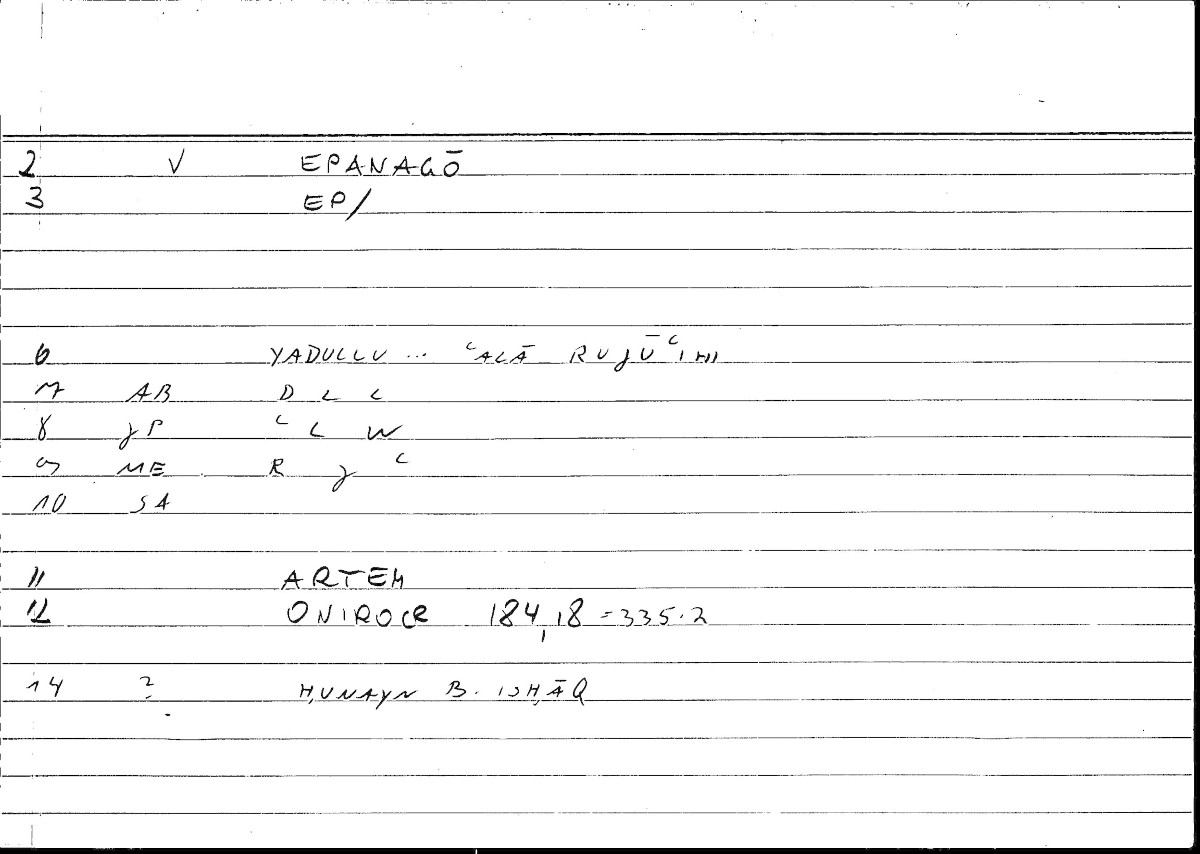 2 V EPANAGŌ
3 EP/
6 YADULLU ... ʿALĀ RUJŪʿIHI
7 AB D L L
8 JP ʿ L W
9 ME R J ʿ
10 SA
11 ARTEM
12 ONIROCR 184,18 = 335.2
14 ? H,UNAYN B. ISH,ĀQ